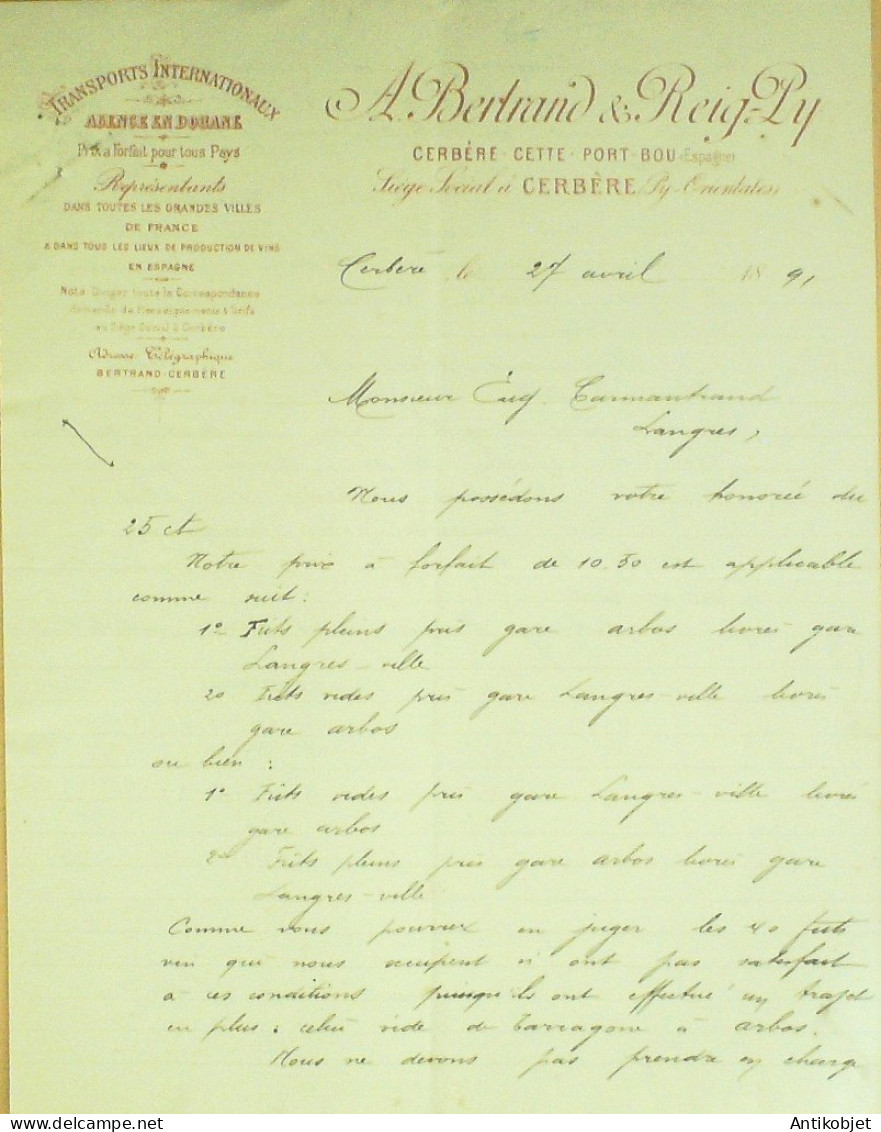 TRANSPORTS INTERNATIONAUX
AGENCE EN DOUANE
Prix à Forfait pour tous Pays
Représentants
DANS TOUTES LES GRANDES VILLES
DE FRANCE
& DANS TOUS LES LIEUX DE PRODUCTION DE VINS
EN ESPAGNE
Nota Diriger toute la Correspondance
demande de Renseignements & Tarifs
au Siège Social à Cerbère
Adresse Télégraphique
BERTRAND-CERBÈRE
A. Bertrand & Reig-Py
CERBÈRE - CETTE - PORT-BOU (Espagne)
Siège Social à CERBÈRE (Py-Orientales)
Cerbère le 27 avril 1891
Monsieur Eug. Carmantrand
Langres,
Nous possédons votre honorée du
25 ct
Notre prix à forfait de 10.50 est applicable
comme suit :
1º Futs pleins pris gare arbos livrés gare
Langres-ville
2º Futs vides pris gare Langres-ville livrés
gare arbos
ou bien :
1º Futs vides pris gare Langres-ville livrés
gare arbos
2º Futs pleins pris gare arbos livrés gare
Langres-ville
Comme vous pouvez en juger les 40 futs
vin qui nous occupent n'ont pas satisfait
à ces conditions puisqu'ils ont effectué un trajet
en plus : celui vide de Tarragone à arbos.
Nous ne devons pas prendre en charge
Antikobjet